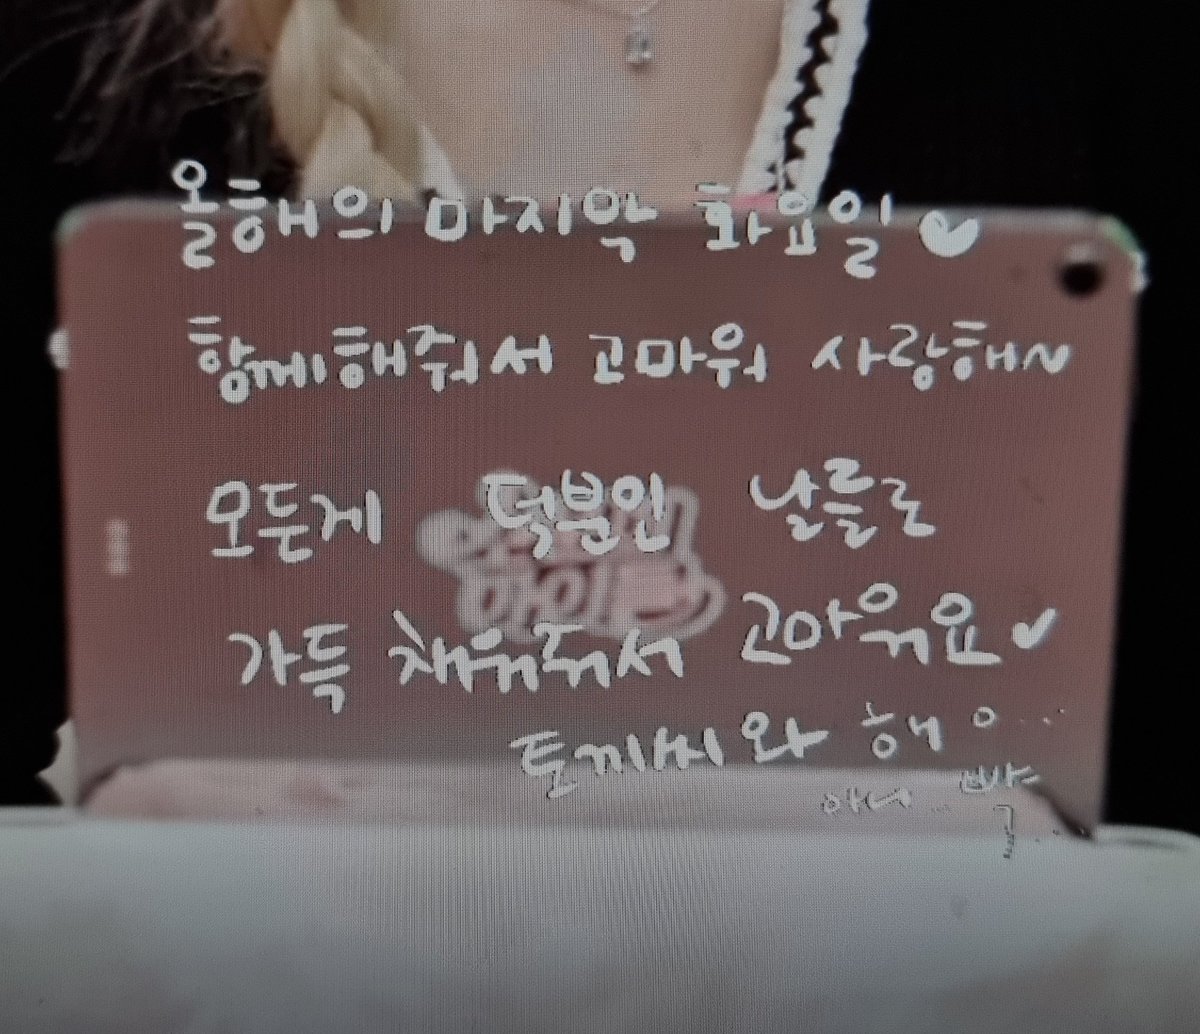 올해의 마지막 화요일
함께해줘서 고마워 사랑해~
모든게 덕분인 날들로
가득 채워줘서 고마워요
토끼씨와 해 ㅇ...
아니...
하이